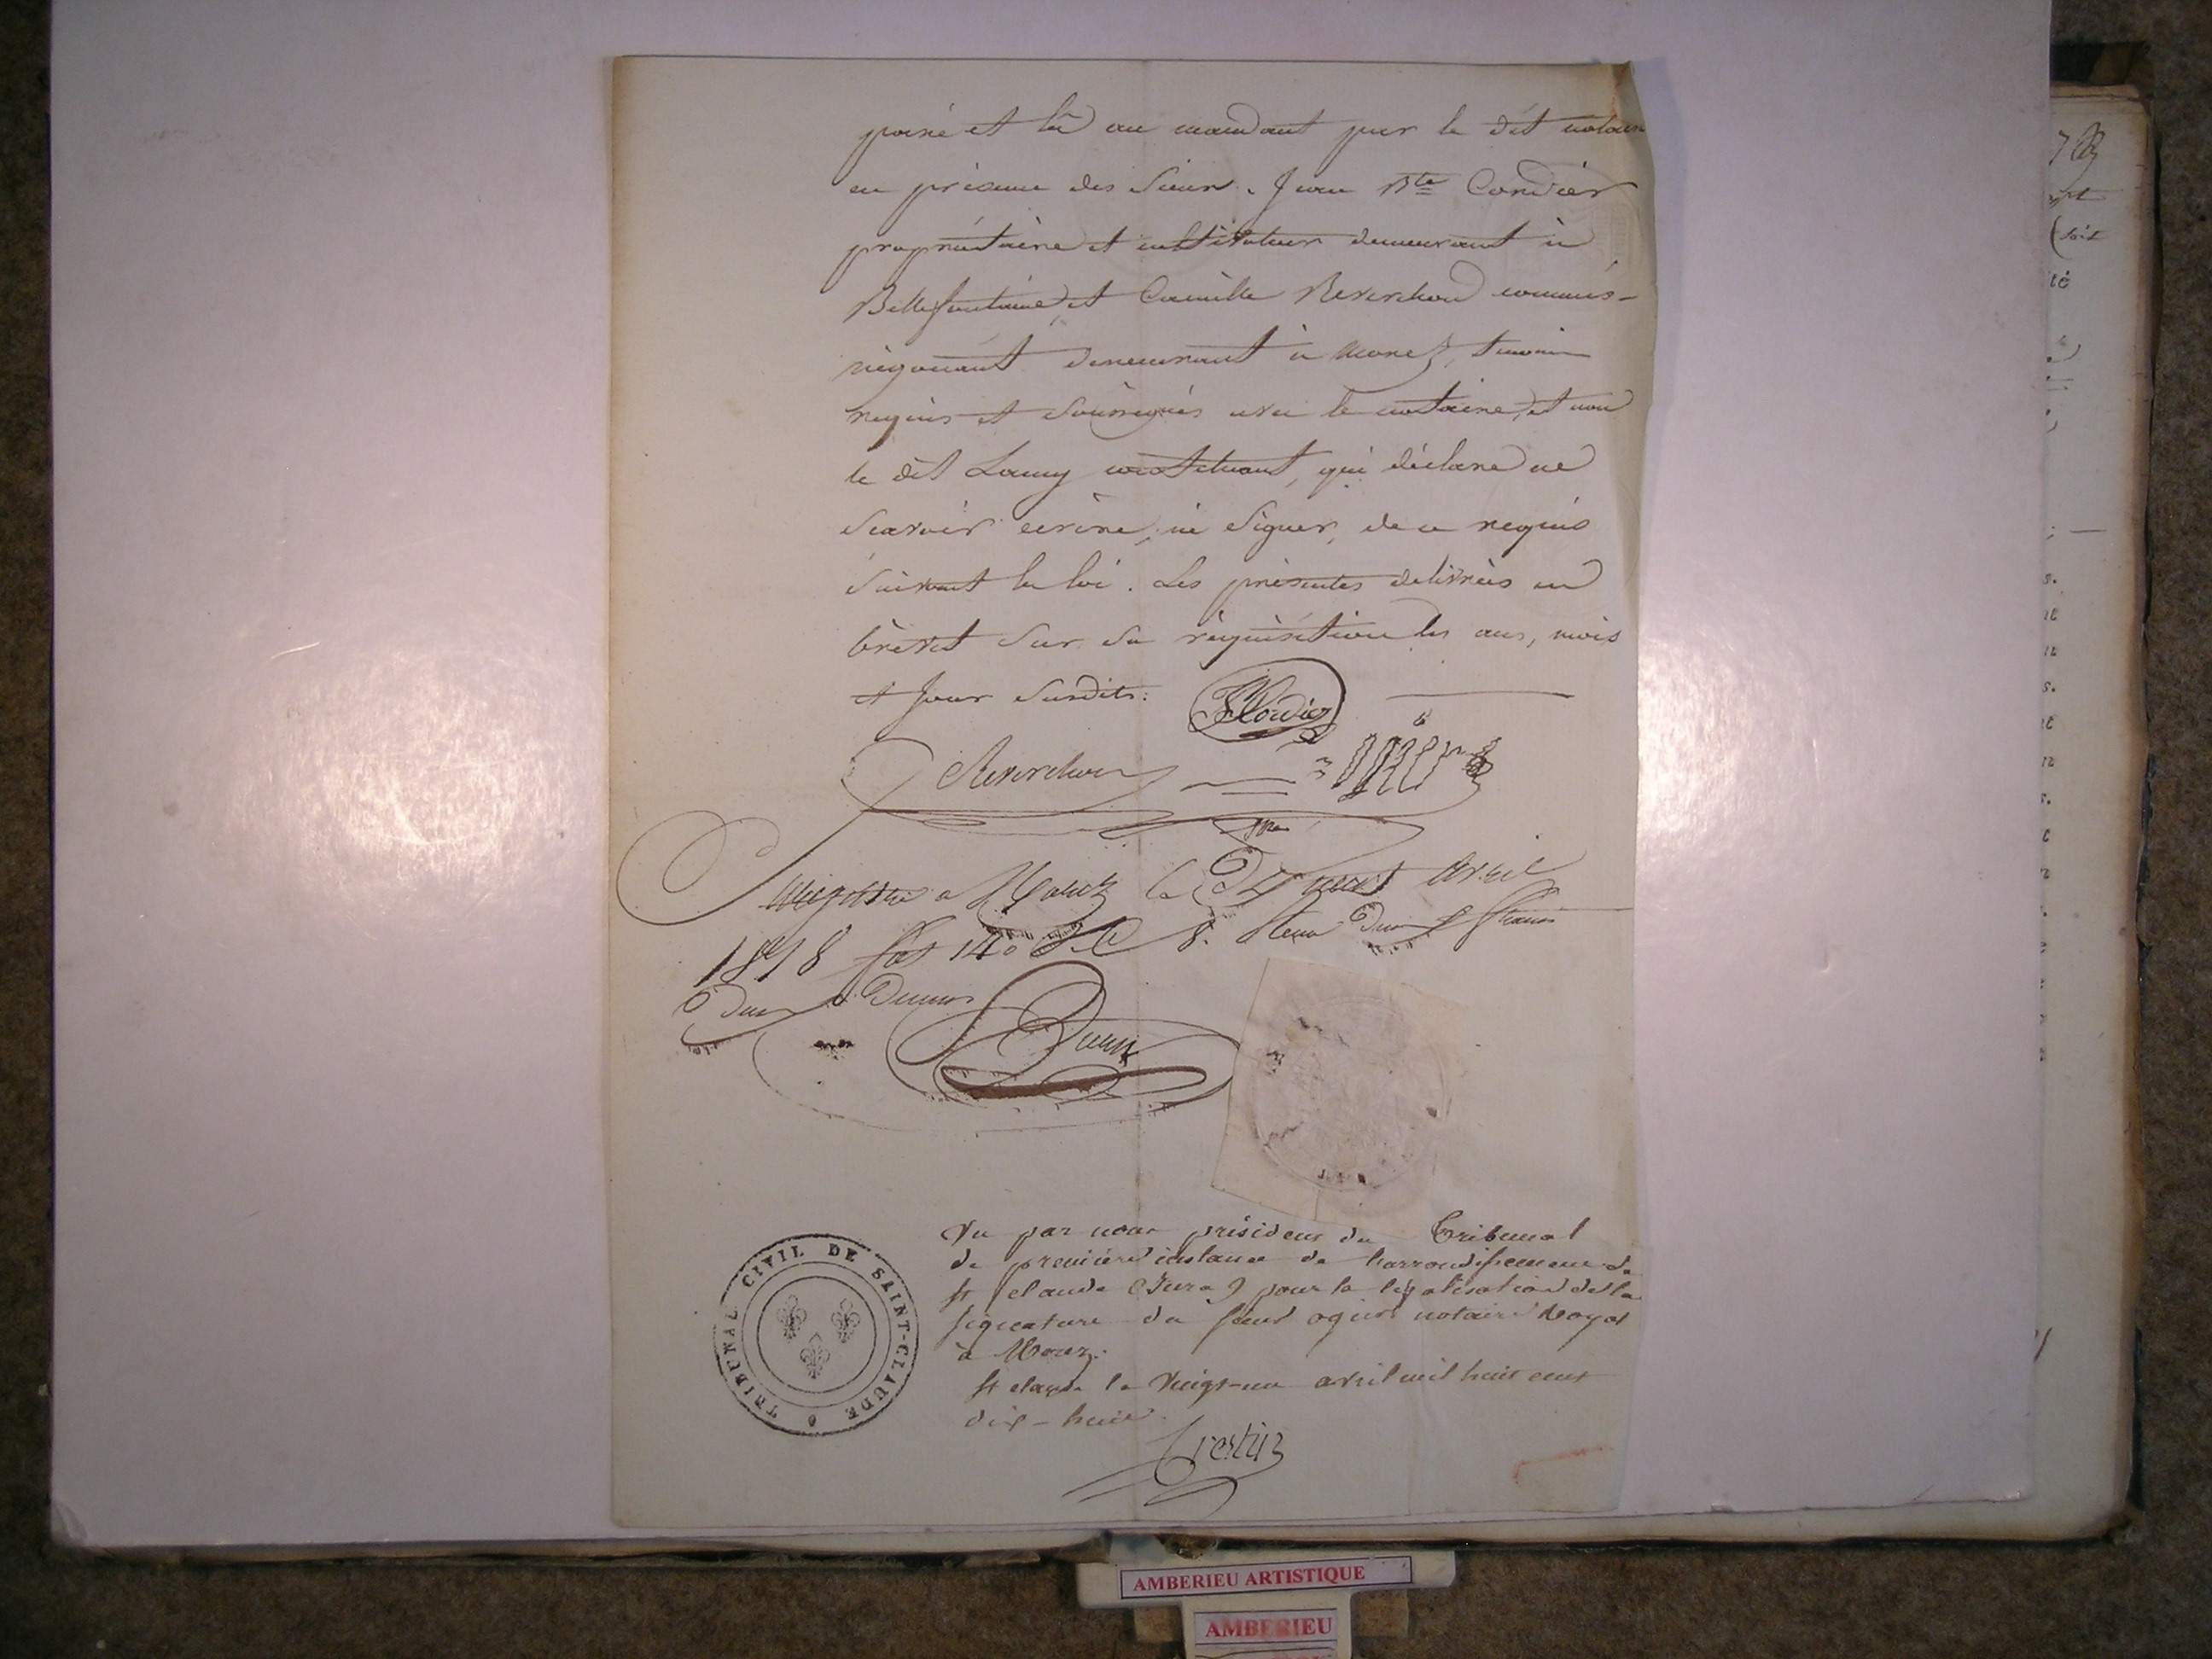 et lû au mandant par le dit notaire
en présence des Sieurs Jean Bte Cordier
propriétaire et cultivateur demeurant à
Bellefontaine, et Camille Reverchon commis-
négociant demeurant à Morez, témoins
requis et soussignés avec le notaire, et non
le dit Lamy constituant, qui déclare ne
Scavoir écrire, ni Signer, de ce requis
Suivant la loi. Les présentes délivrées en
brevet Sur Sa réquisition les ans, mois
et Jour Susdits.
Cordier
Reverchon
Enregistré a Morez le avril
1818 fol 140 8.
TRIBUNAL CIVIL DE SAINT-CLAUDE
Vu par nous président du Tribunal
de première instance de l'arrondissement de
st claude (Jura) pour la légalisation de la
signature du sieur ogier notaire Royal
à Morez.
st claude le vingt-un avril mil huit cent
dix-huit.
AMBERIEU ARTISTIQUE
AMBERIEU